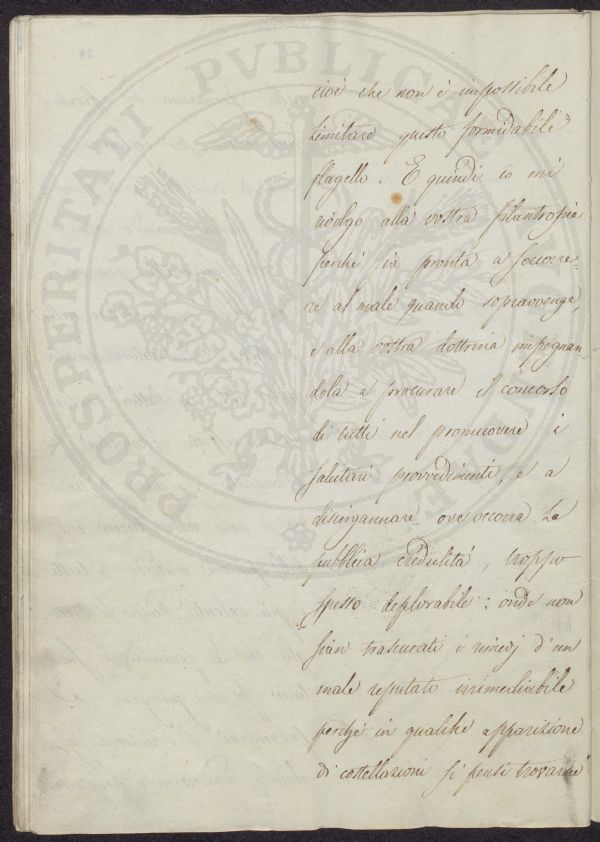 cioè che non è impossibile
limitare questo formidabile
flagello. E quindi io mi
rivolgo alla vostra filantropia
perché sia pronta a soccorre-
re al male quando sopravvenga,
e alla vostra dottrina impegnan-
dola a procurare il concorso
di tutti nel promuovere i
salutari provvedimenti, e a
disingannare ove occorra la
pubblica credulità, troppo
spesso deplorabile: onde non
sian trascurati i rimedj d'un
male reputato irrimediabile
perché in qualche apparizione
di costellazioni si pensi trovarne
PROSPERITATI PVBLICAE